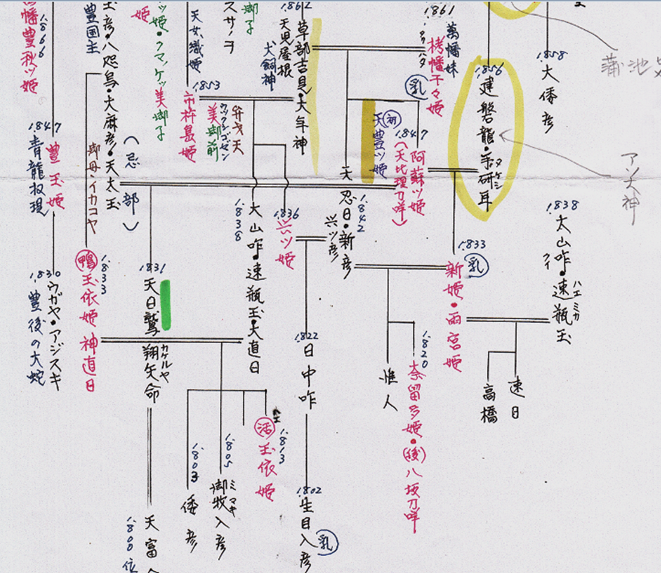 1858
大倭彦
1856
建磐龍・
蒲池
アソ大神
1861
萬幡妹
タクハタ
栲幡千々姫
乳
1862
草部吉見・大年神
天児屋根
犬飼神
スサノヲ
ツ姫・クマケツ美御子
姫
天女織姫
1853
市杵島姫
弁才天
美御前
ウツクシゴゼン
1866
幡豊秋ツ姫
豊国主
玉彦・八咫烏・大麻彦・天太玉
(忌部)
御母・イカコヤ
1847
豊玉姫
青龍权現
1847
阿蘇ツ姫
(天比理刀咩)
初
天豊ツ姫
1842
天忍日・新彦
興ツ彦
1836
興ツ姫
1838
大山咋・速瓶玉・天直日
1838
大山咋・速瓶玉
クイ
ハエミカ
1833
乳
新姫・雨宮姫
速日
高橋
1820
奈留多姫・(後)八坂刀咩
惟人
1822
日中咋
1802
生目入彦
乳
1831
天日鷲
翔矢命
カケルヤ
1833
鴨
玉依姫 神直日
1830
ウガヤ・アジスキ
豊後の大蛇
1813
活玉依姫
1805
御牧入彦
ミマキ
1803
倭彦
天富命
1800